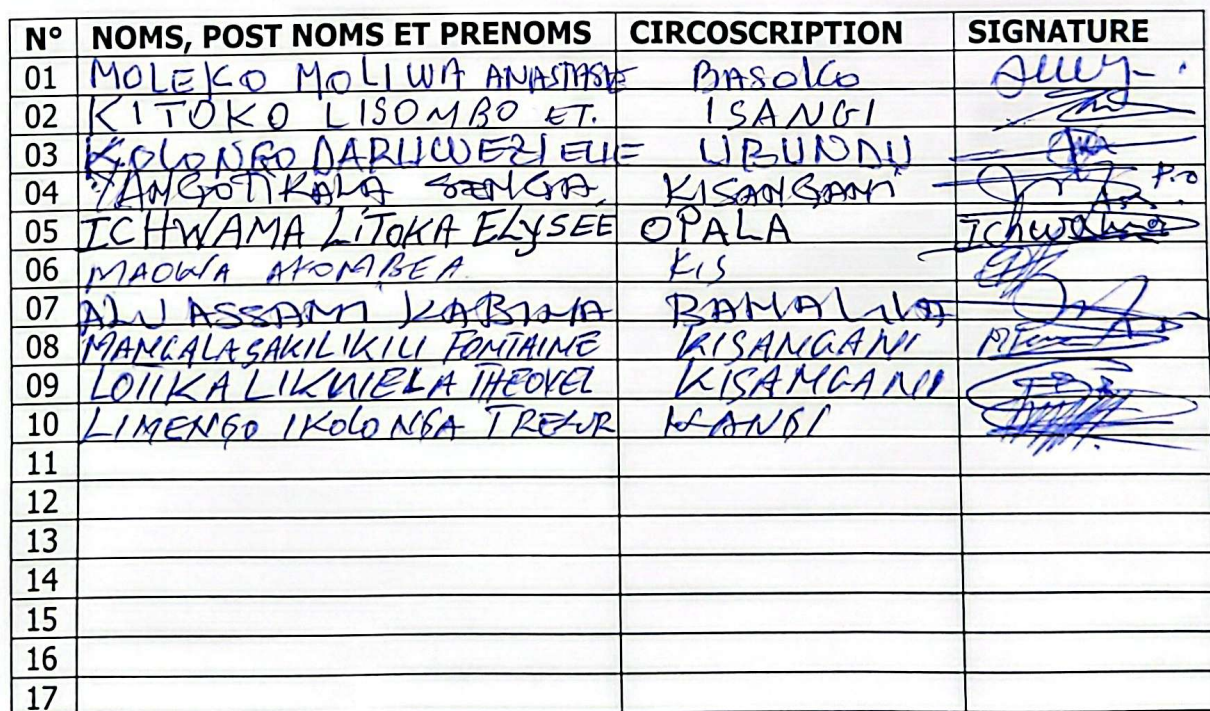 N° NOMS, POST NOMS ET PRENOMS CIRCOSCRIPTION SIGNATURE
01 MOLEKO MOLIWA ANASTASIE BASOKO
02 KITOKO LISOMBO ET. ISANGI
03 KOLONGO DARUWEZI ELIE UBUNDU
04 YANGOTIKALA SENGA. KISANGANI P.O
05 ICHWAMA LITOKA ELYSEE OPALA Ichwama
06 MAOWA AKOMBEA KIS
07 ASSANI KABINA
08 MANGALA SAKILIKILI FONTAINE KISANGANI
09 THEOVEL KISANGANI
10 LIMENGO IKOLONGA TRESOR
11
12
13
14
15
16
17